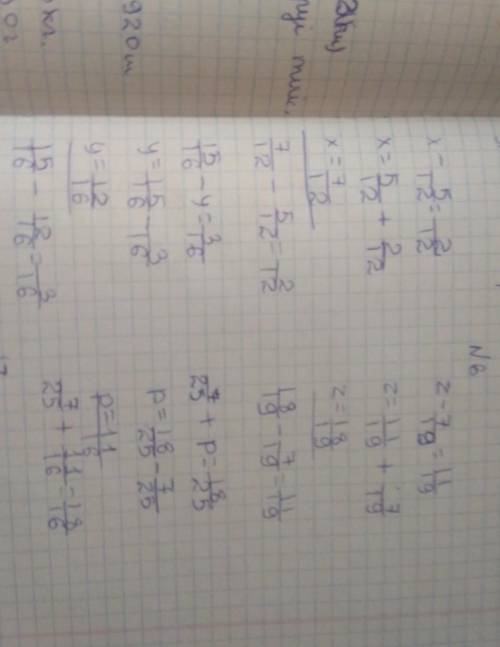 N6
x - 5/12 = 2/12
x = 5/12 + 2/12
x = 7/12
7/12 - 5/12 = 2/12
15/16 - y = 3/16
y = 15/16 - 3/16
y = 12/16
15/16 - 12/16 = 3/16
z - 7/19 = 11/19
z = 11/19 + 7/19
z = 18/19
18/19 - 7/19 = 11/19
7/25 + p = 18/25
p = 18/25 - 7/25
p = 11
7/25 + 11/16 = 18/16
920 m
кг.